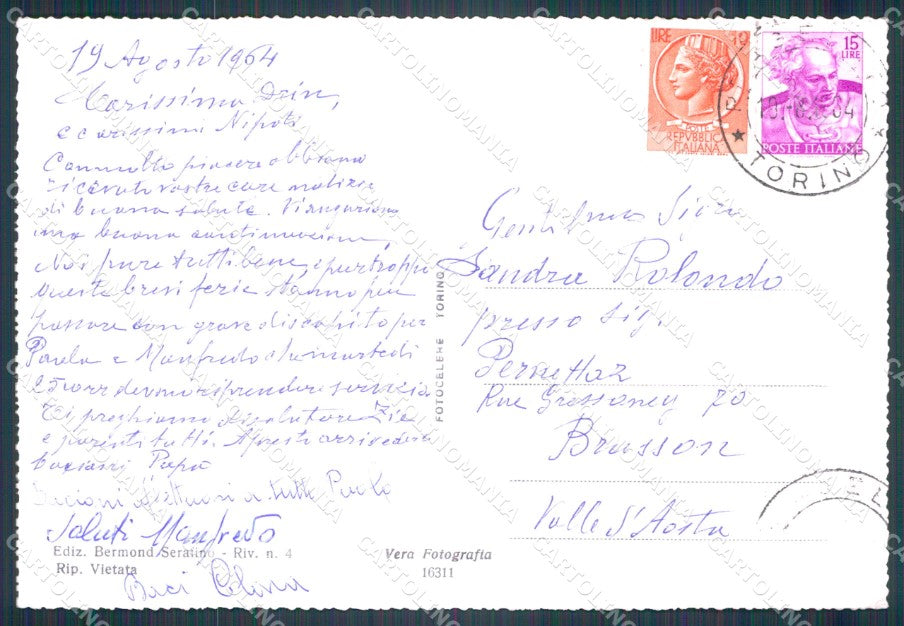 19 Agosto 1964
Carissima
e carissimi Nipoti
Con molto piacere abbiamo
ricevuto vostre care notizie
di buona salute. Vi auguriamo
una buona continuazione,
Noi pure tutti bene, purtroppo
queste brevi ferie stanno per
passare con grave disappito per
Paola e Manfredo che martedì
25 corr devono riprendere servizio
Ti preghiamo di salutare Zie
e parenti tutti. A presto arrivederci
bacioni Papà
Bacioni affettuosi a tutti Paola
Saluti Manfredo
Baci
Ediz. Bermond Serafino - Riv. n. 4
Rip. Vietata
Vera Fotografia
16311
FOTOCELERE TORINO
LIRE 10
POSTE
REPVBBLICA
ITALIANA
15
LIRE
POSTE ITALIANE
TORINO
Gentilma Sigra
Sandra Rolando
presso Sig.
Pernettaz
Rue Gressoney 70
Brusson
Valle d'Aosta
CARTOLINOMANIA